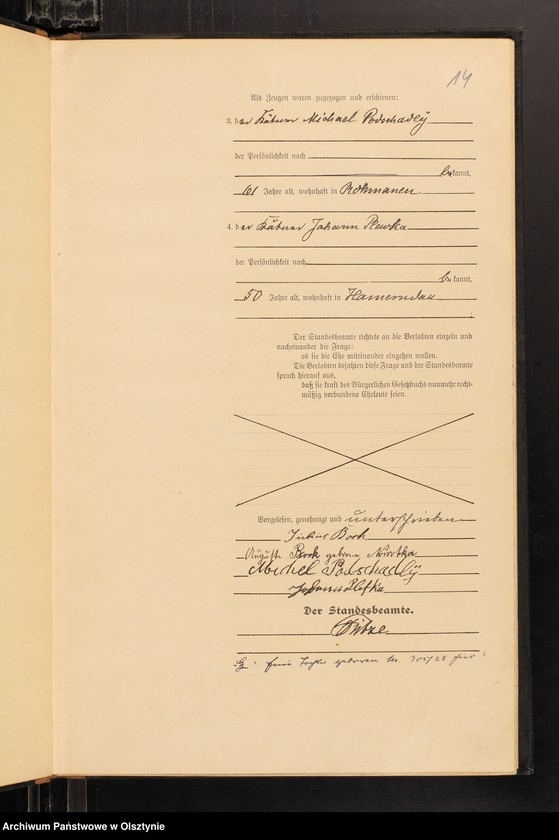 14
Als Zeugen waren zugezogen und erschienen:
3. der Kätner Michael Podschadly
der Persönlichkeit nach
bekannt,
61 Jahre alt, wohnhaft in Rohmanen
4. der Kätner Johann Plewka
der Persönlichkeit nach
bekannt,
50 Jahre alt, wohnhaft in Hamerudau
Der Standesbeamte richtete an die Verlobten einzeln und
nacheinander die Frage:
ob sie die Ehe miteinander eingehen wollen.
Die Verlobten bejahten diese Frage und der Standesbeamte
sprach hierauf aus,
daß sie kraft des Bürgerlichen Gesetzbuchs nunmehr recht-
mäßig verbundene Eheleute seien.
Vorgelesen, genehmigt und unterschrieben
Julius Bork
Auguste Bork geborene
Michel Podschadly
Johann Plefka
Der Standesbeamte.
geboren Nr. 305/28
Archiwum Państwowe w Olsztynie